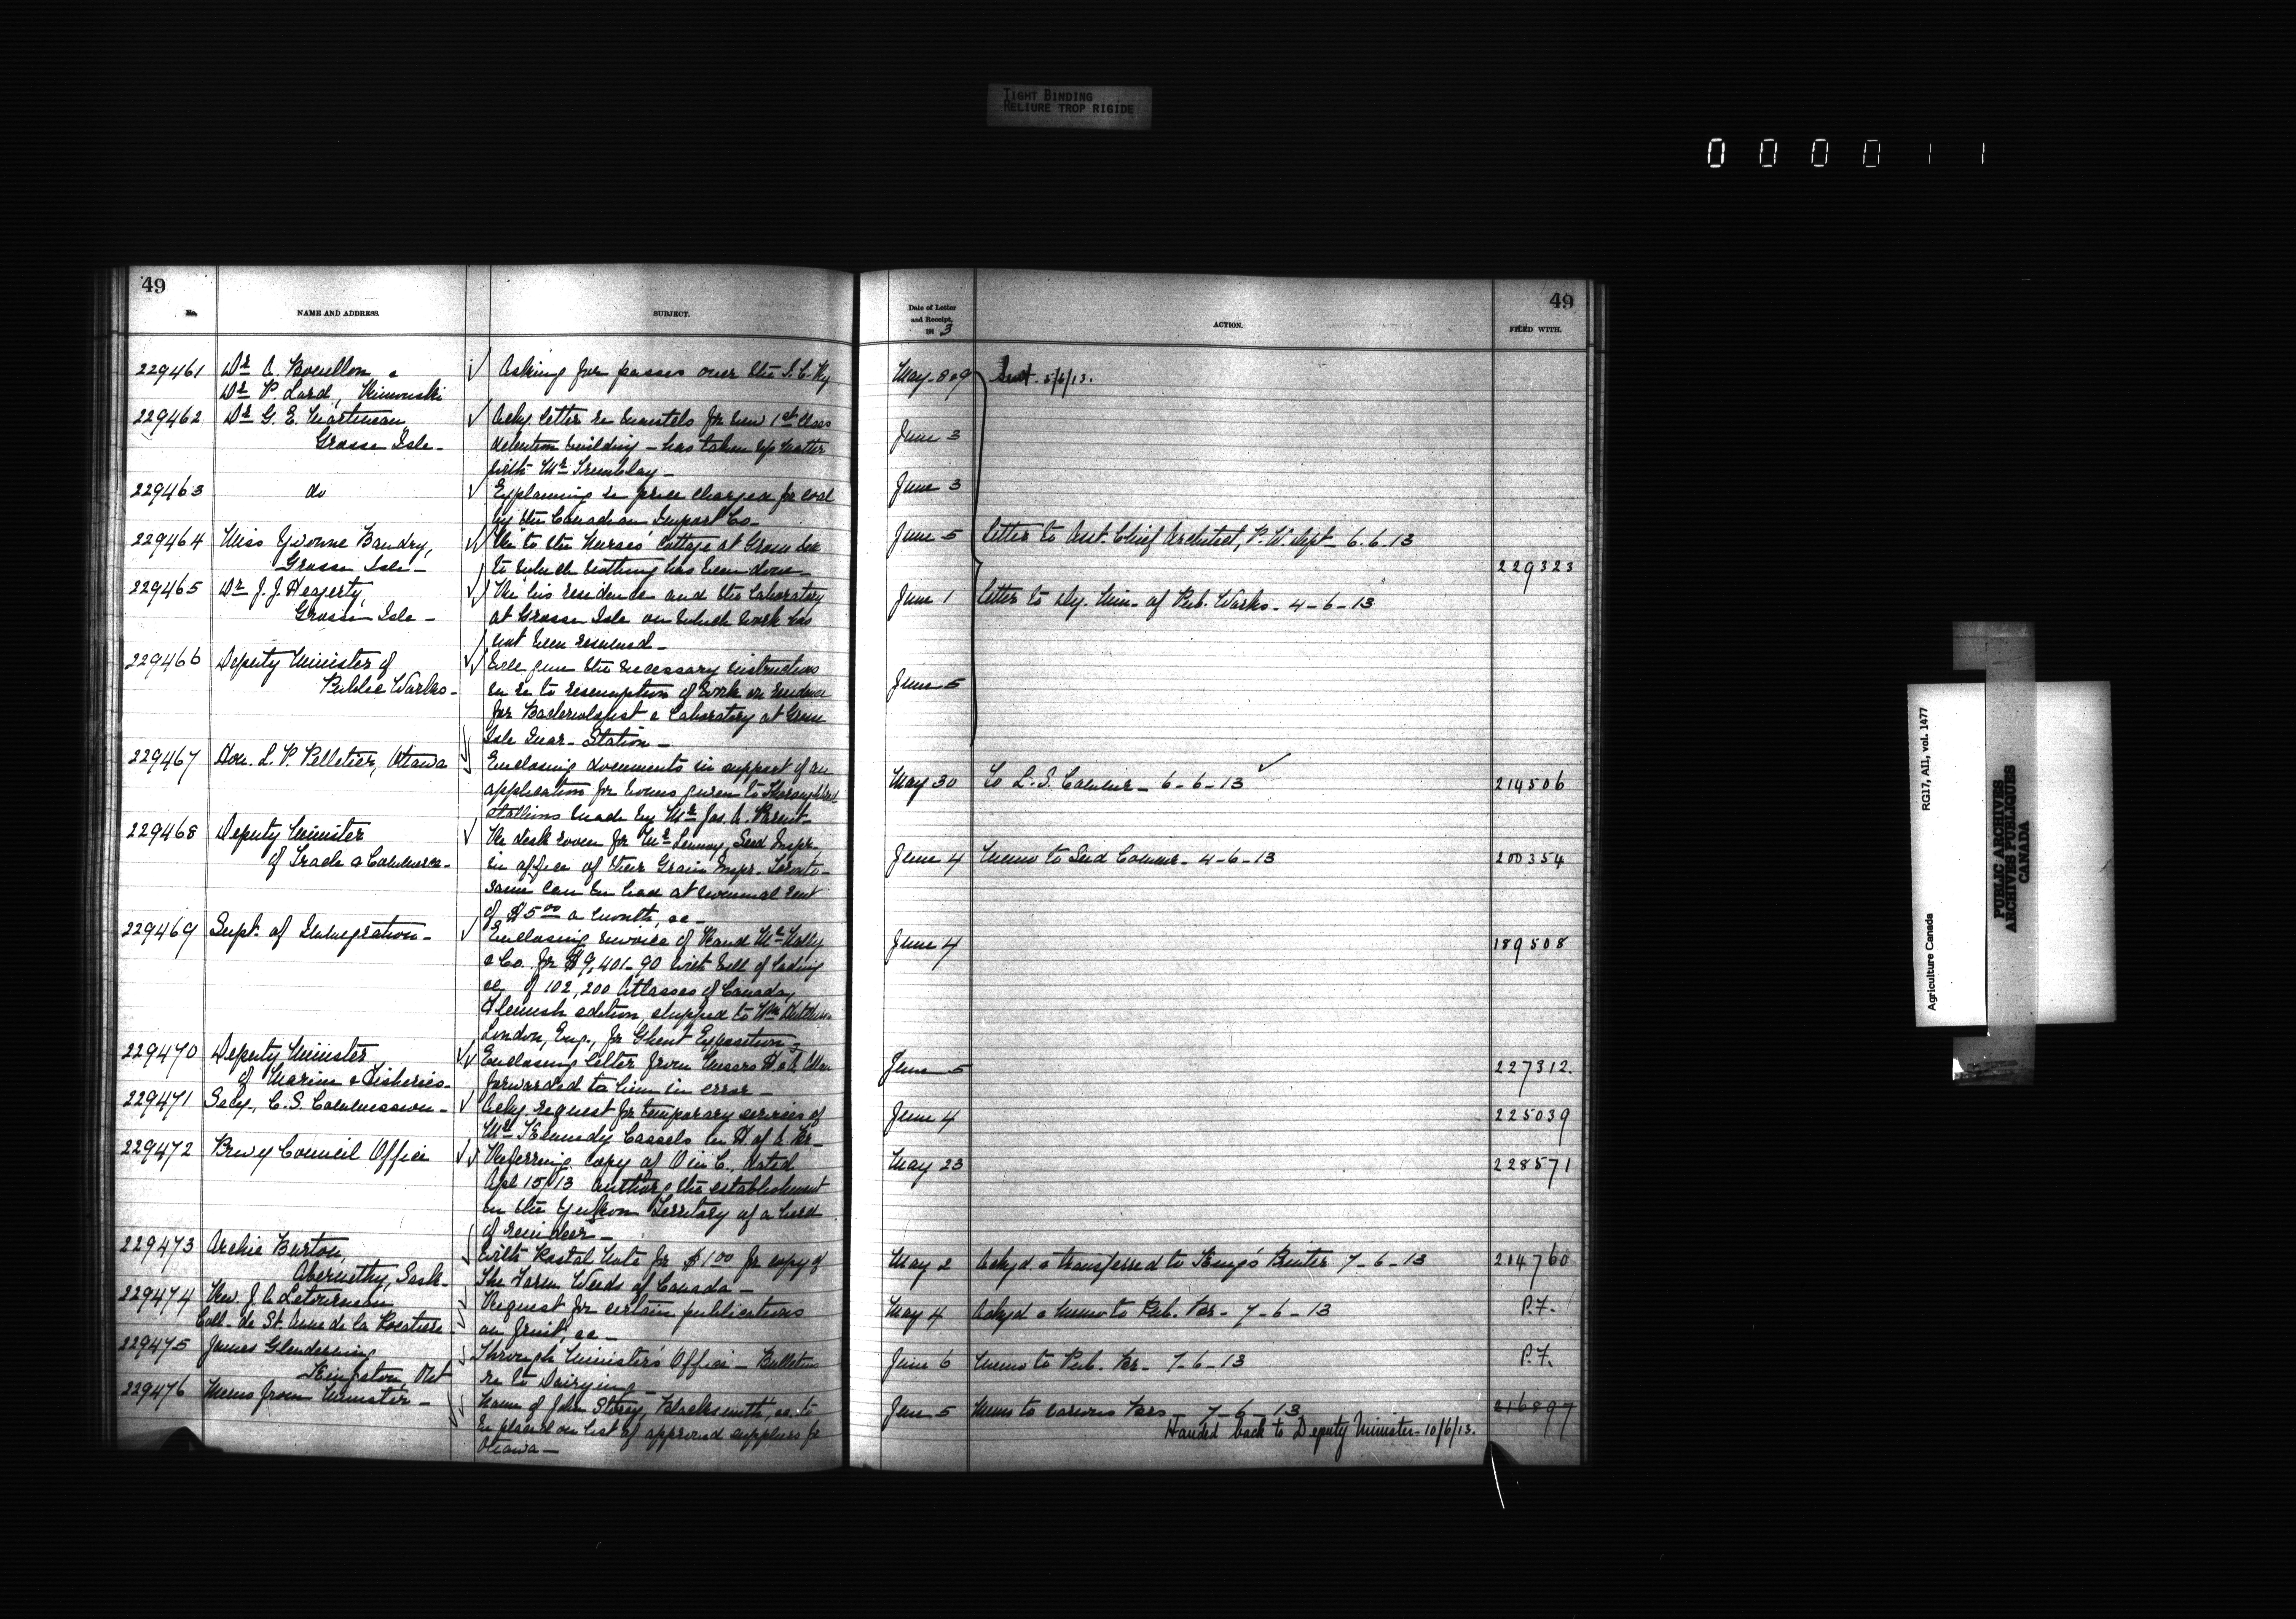 TIGHT BINDING
RELIURE TROP RIGIDE
0 0 0 0 1 1
49
No.
NAME AND ADDRESS.
SUBJECT.
229461 Dr A. &
Dr P. Lard, Rimouski
Asking for passes over the I. C. Ry
229462 Dr G. E. Martineau
Grosse Isle -
Ackg. letter re mantels for new 1st class
detention building - has taken up matter
with Mr Tremblay -
229463 do
Explaining re price charged for coal
by the Canadian Import Co -
229464 Miss Yvonne Baudry,
Grosse Isle -
Re to the Nurses' Cottage at Grosse Isle
to which nothing has been done -
229465 Dr J. J. Heagerty,
Grosse Isle -
Re his residence and the laboratory
at Grosse Isle on which work has
not been resumed -
229466 Deputy Minister of
Public Works -
Will give the necessary instructions
in re to resumption of work on residence
for Bacteriologist & Laboratory at Grosse
Isle Quar. Station -
229467 Hon. L. P. Pelletier, Ottawa
Enclosing documents in support of an
application for bonus given to Thoroughbred
Stallions made by Mr Jas. A.
229468 Deputy Minister
of Trade & Commerce -
Re desk room for Mr Lennox, Seed Inspr.
in office of their Grain Inspr. Toronto -
same can be had at nominal rent
of $5.00 a month, &c -
229469 Supt. of Immigration -
Enclosing invoice of Rand McNally
& Co. for $9,401-90 with bill of lading
&c, of 102,200 Atlasses of Canada,
Flemish edition, shipped to Wm
London, Eng., for Ghent Exposition -
229470 Deputy Minister
of Marine & Fisheries -
Enclosing letter from Messrs H. & A. Allan
forwarded to him in error -
229471 Secy., C. S. Commission -
Ackg. request for temporary services of
Mr Kennedy Cassels in H. of A. Br -
229472 Privy Council Office
Referring copy of O in C., dated
Apl 15/13 authorg the establishment
in the Yukon Territory of a herd
of reindeer -
229473 Archie Burton,
Abernethy, Sask -
With Postal Note for $1.00 for copy of
The Farm Weeds of Canada -
229474 Rev. J. A. Letourneau
Coll. de St. Anne de la Pocatiere -
Request for certain publications
on fruit, &c -
229475 James Glendenning
Kingston, Ont
Through Minister's Office - Bulletins
re to Dairying -
229476 Memo from Minister -
Name of John Storey, Blacksmith, &c. to
be placed on list of approved suppliers for
Ottawa -
49
Date of Letter
and Receipt,
1913
ACTION.
FILED WITH.
May 8 & 9 5/6/13.
June 3
June 3
June 5 Letter to Asst. Chief Architect, P. W. Dept - 6.6.13
229323
June 1 Letter to Dy. Min. of Pub. Works - 4-6-13
June 5
May 30 To L. S. Commr - 6-6-13 214506
June 4 Memo to Seed Commr - 4-6-13 200354
June 4 189508
June 5 227312.
June 4 225039
May 23 228571
May 2 Ackgd & transferred to King's Printer 7-6-13 214760
May 4 Ackgd & memo to Pub. Br - 7-6-13 P.F.
June 6 Memo to Pub. Br - 7-6-13 P.F.
June 5 Memo to various Brs - 7-6-13 216897
Handed back to Deputy Minister - 10/6/13.
Agriculture Canada
RG17, AII, vol. 1477
PUBLIC ARCHIVES
ARCHIVES PUBLIQUES
CANADA